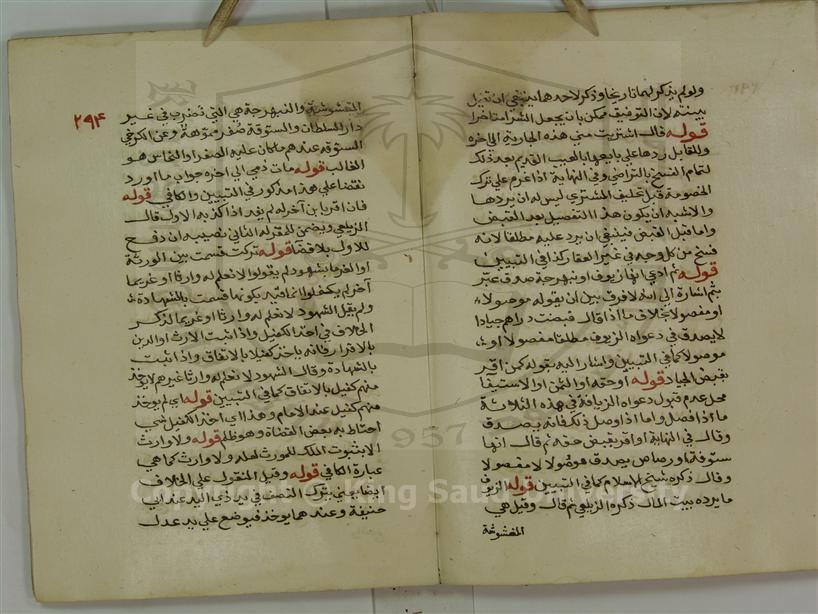 ولو لم يذكر لهما تاريخا وذكر لاحدهما ينبغي ان تقبل
بينته لان التوفيق ممكن بان يجعل الشرا متاخرا
قوله قال اشتريت مني هذه الجارية الي اخره
وللقابل ردها علي بايعها بالعيب القديم بعد ذلك
لتمام الفسخ بالتراضي وفي النهاية اذا عزم علي ترك
الخصومة قبل تحليف المشتري ليس له ان يردها
والاشبه ان يكون هذا التفصيل بعد القبض
واما قبل القبض فينبغي ان يرد عليه مطلقا لانه
فسخ من كل وجه في غير العقار كذا في التبيين
قوله ثم ادعي انها زيوف او نبهرجة صدق عبر
بثم اشارة الي انه لا فرق بين ان يقوله موصولا
او مفصولا بخلاف ما اذا قال قبضت دراهم جيادا
لا يصدق في دعواه الزيوف مطلقا مفصولا او
موصولا كما في التبيين واشار اليه بقوله كمن اقر
بقبض الجياد قوله او حقه او الثمن او الاستيفا
محل عدم قبول دعواه الزيافة في هذه الثلاثة
ما اذا فصل واما اذا وصل ذلك فانه يصدق
وقال في النهاية او اقر بقبض حقه ثم قال انها
ستوقة او رصاص يصدق موصولا لا مفصولا
وقال ذكره شيخ الاسلام كما في التبيين قوله الزيوف
ما يرده بيت المال ذكره الزيلعي ثم قال وقيل هي
المغشوشة
٢٩٤
المغشوشة والنبهرجة هي التي تضرب في غير
دار السلطان والستوقة صفر مموهة وعن الكرخي
الستوقة عندهم ما كان عليه الصفر او النحاس هو
الغالب قوله مات ذمي الي اخره جواب ما اورد
نقضا علي هذا مذكور في التبيين والكافي قوله
فان اقر بابن آخر له لم يفد اذا كذبه الاول قال
الزيلعي ويضمن للمقر له الثاني نصيبه ان دفع
للاول بلا قضا قوله تركت قسمت بين الورثة
او الغرما بشهود لم يقولوا لا نعلم له وارثا او غريما
آخر لم يكفلوا انما قيد بكونها قسمت بالشهادة
ولم يقل الشهود لا نعلم له وارثا او غريما لذكر
الخلاف في اخذ الكفيل واذا ثبت الارث او الدين
بالاقرار فانه ياخذ كفيلا بالاتفاق واذا ثبت
بالشهادة وقال الشهود لا نعلم له وارثا غيرهم لا يوخذ
منهم كفيل بالاتفاق كما في التبيين قوله اي لم يوخذ
منهم كفيل عند الامام وهذا اي اخذ الكفيل شي
احتاط به بعض القضاة وهو ظلم قوله ولا وارث
الا بثبوت الملك للمورث لعله ولا وارث كما هي
عبارة الكافي قوله وقيل المنقول علي الخلاف
ايضا يعني يترك النصف في يد ذي اليد عند ابي
حنيفة وعندهما يوخذ فيوضع علي يد عدل
Copyright © King Saud University
1957